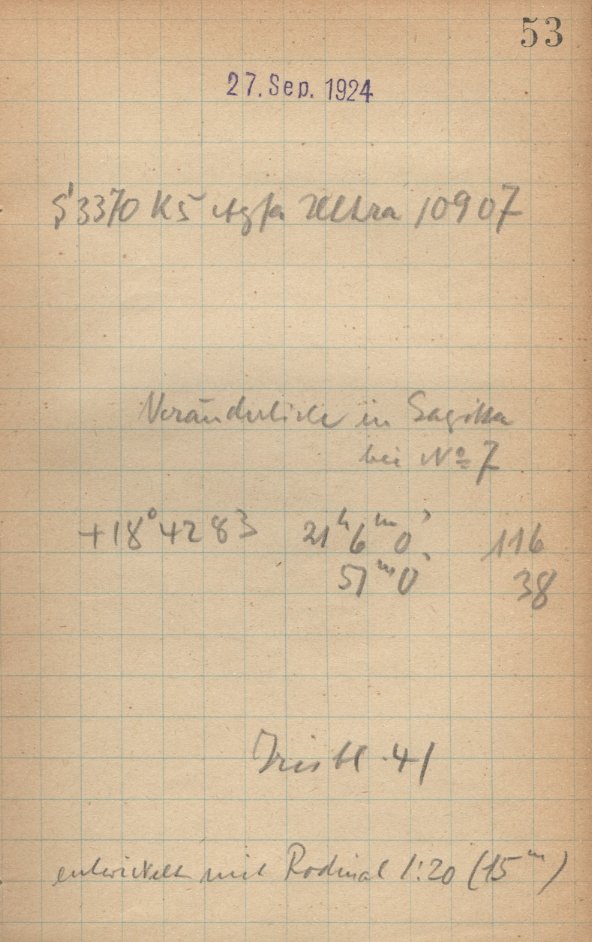 53
27. Sep. 1924
S 3370 K5 Agfa Ultra 10907
Veränderliche in Sagitta
bei No 7
+18° 4283 21ʰ 6ᵐ 0ˢ 116
57ᵐ 0ˢ 38
Irisbl. 41
entwickelt mit Rodinal 1:20 (15ᵐ)